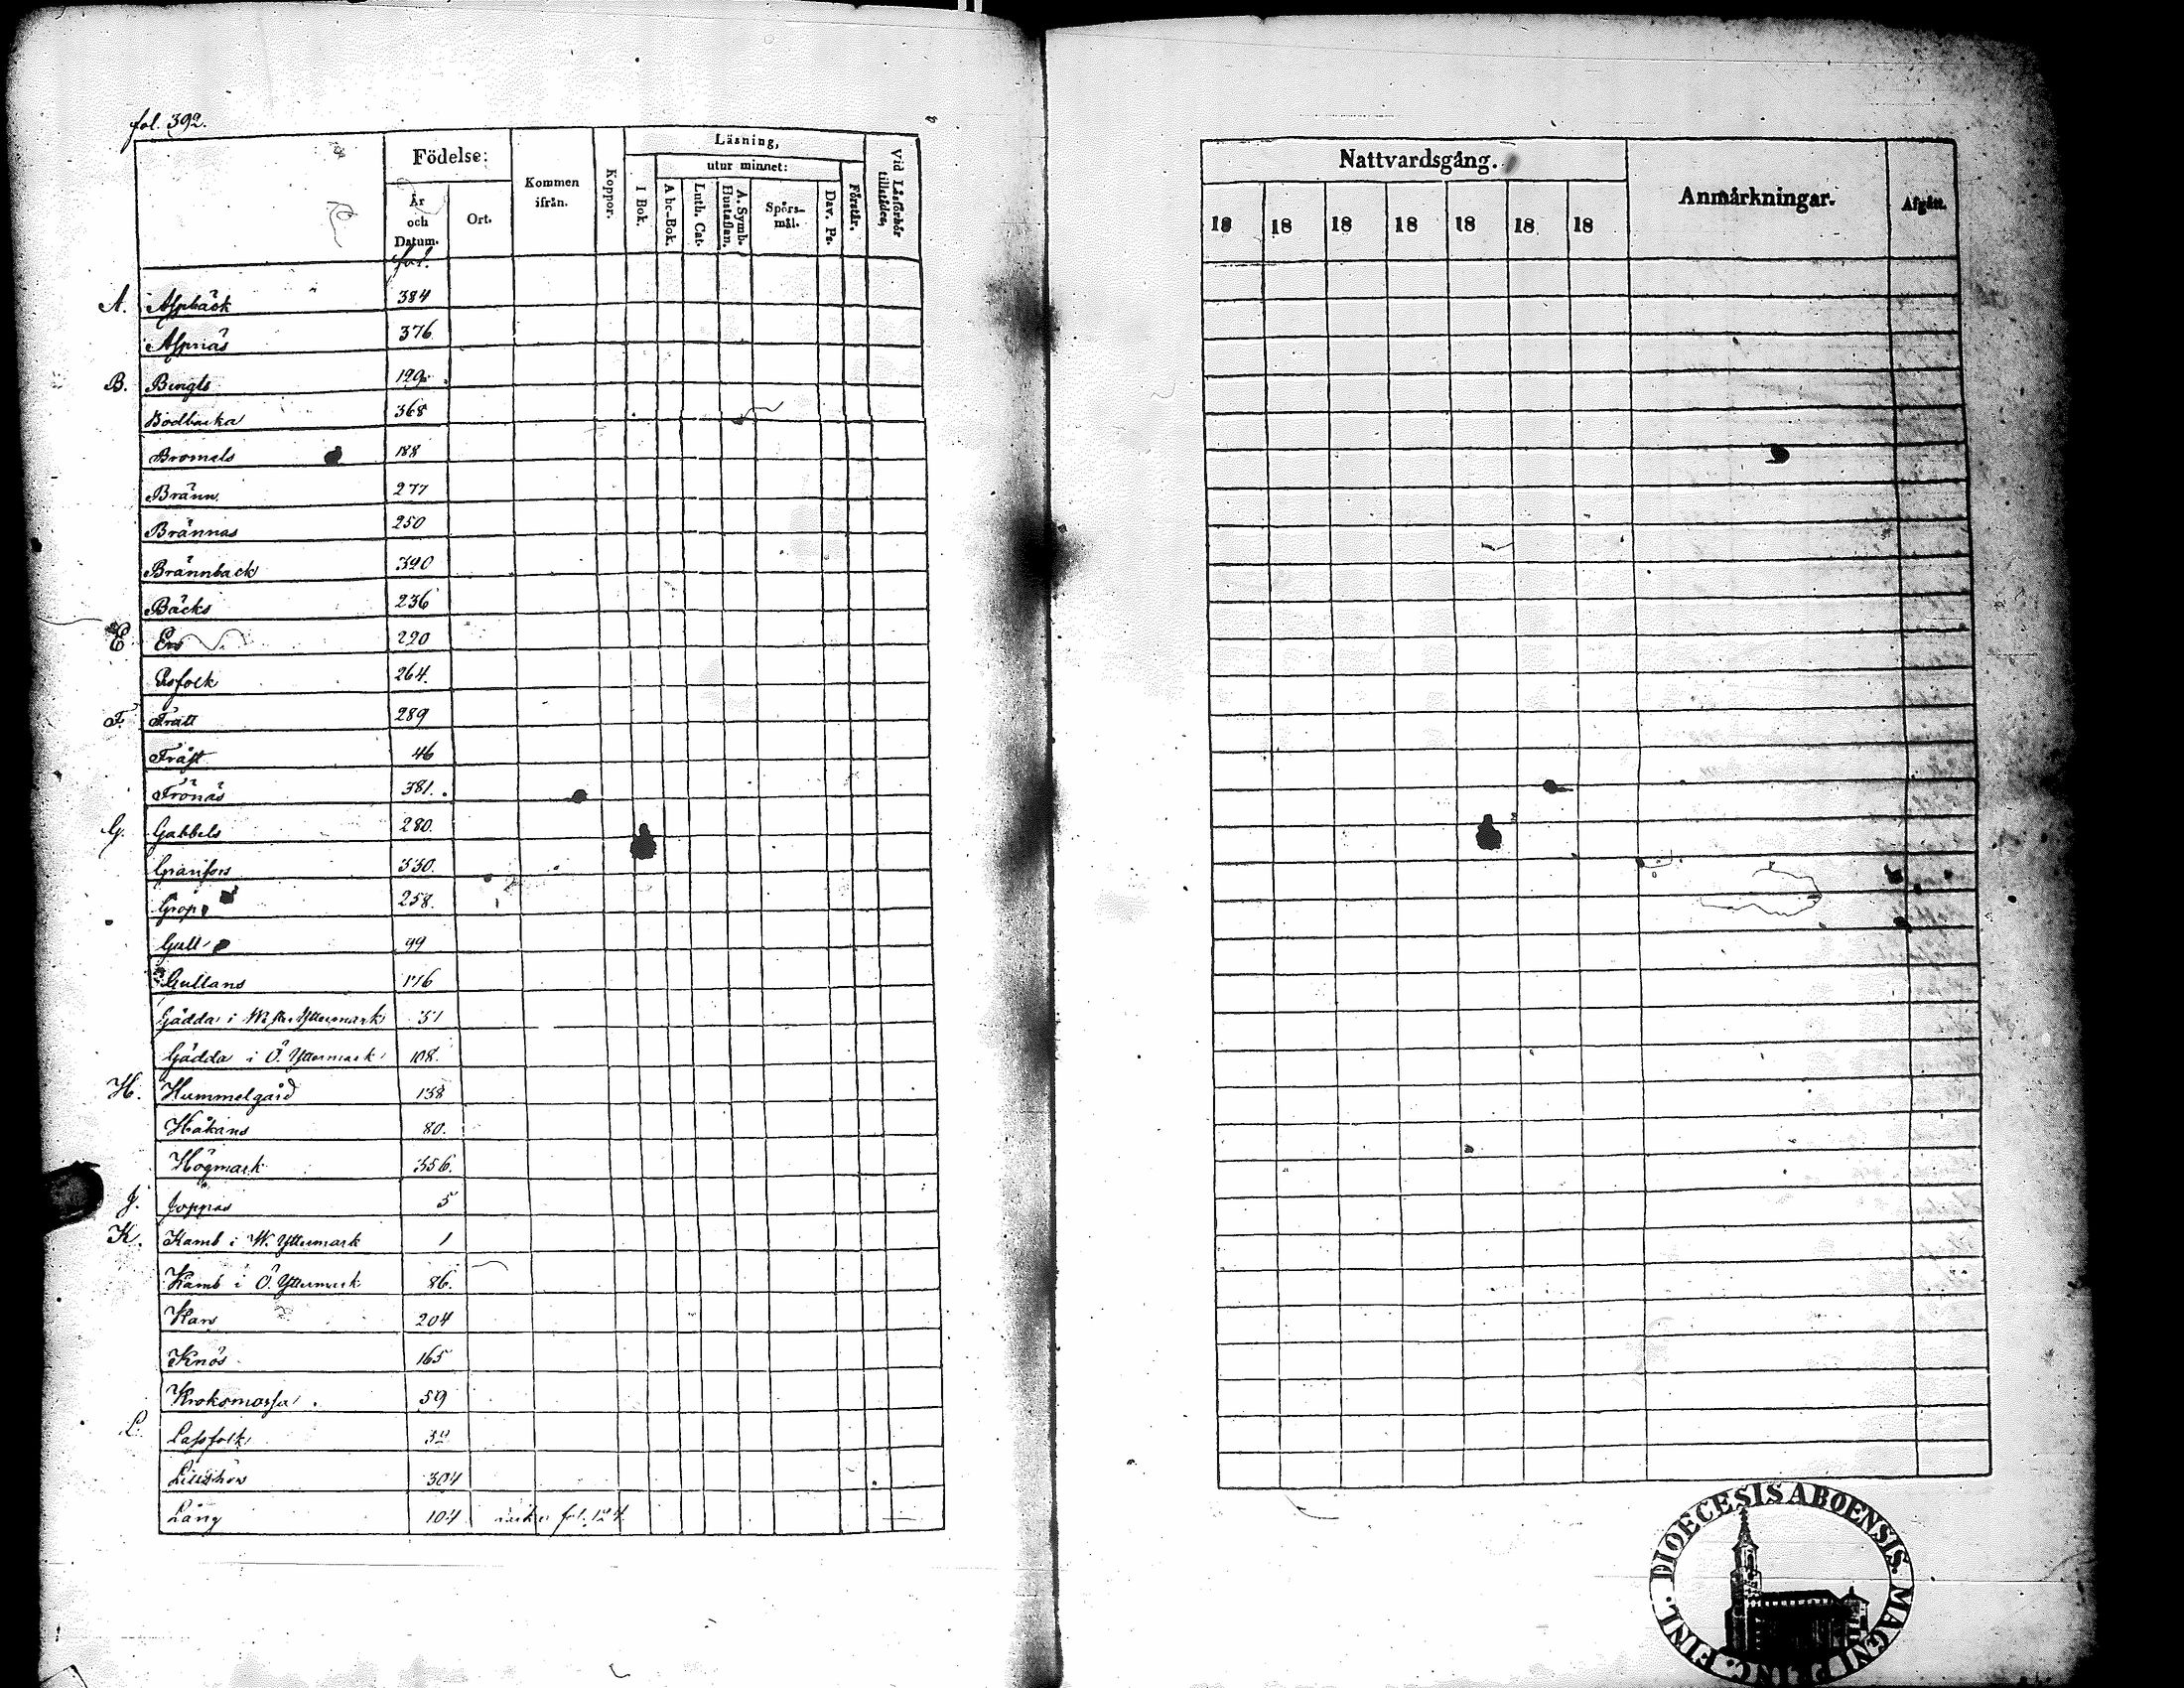 fol. 392.
Födelse:
År och Datum.
Ort.
Kommen ifrån.
Koppor.
Läsning,
I Bok.
utur minnet:
Abc-Bok.
Luth. Cat.
A. Symb. Hustaflan.
Spörsmål.
Dav. Ps.
Förstår.
Vid Läsförhör tillstädes,
fol.
A. Aspbäck 384
Aspnäs 376
B. Bengts 129
Bodbacka 368
Bromels 188
Bränn 277
Brännäs 250
Brännback 390
Bäcks 236
E. Ers 220
Esfolk 264.
F. Fratt 289
Fräst 46
Frönäs 381.
G. Gabbels 280.
Granfors 330.
Grop 258.
Gull 99
Gullans 176
Gädda i Wester Yttermark 31
Gädda i Ö. Yttermark 108.
H. Hummelgård 138
Håkans 80.
Högmark 356.
J. Joppnäs 5
K. Kamb i W. Yttermark 1
Kamb i Ö. Yttermark 86.
Kans 204
Knös 165
Kroksmossa 59
L. Lassfolk 32
Lillsjön 304
Lång 104 fol. 124
Nattvardsgång.
18 18 18 18 18 18 18
Anmärkningar.
Afgått.
DIOECESIS ABOENSIS. MAGNI PRINC. FINL.